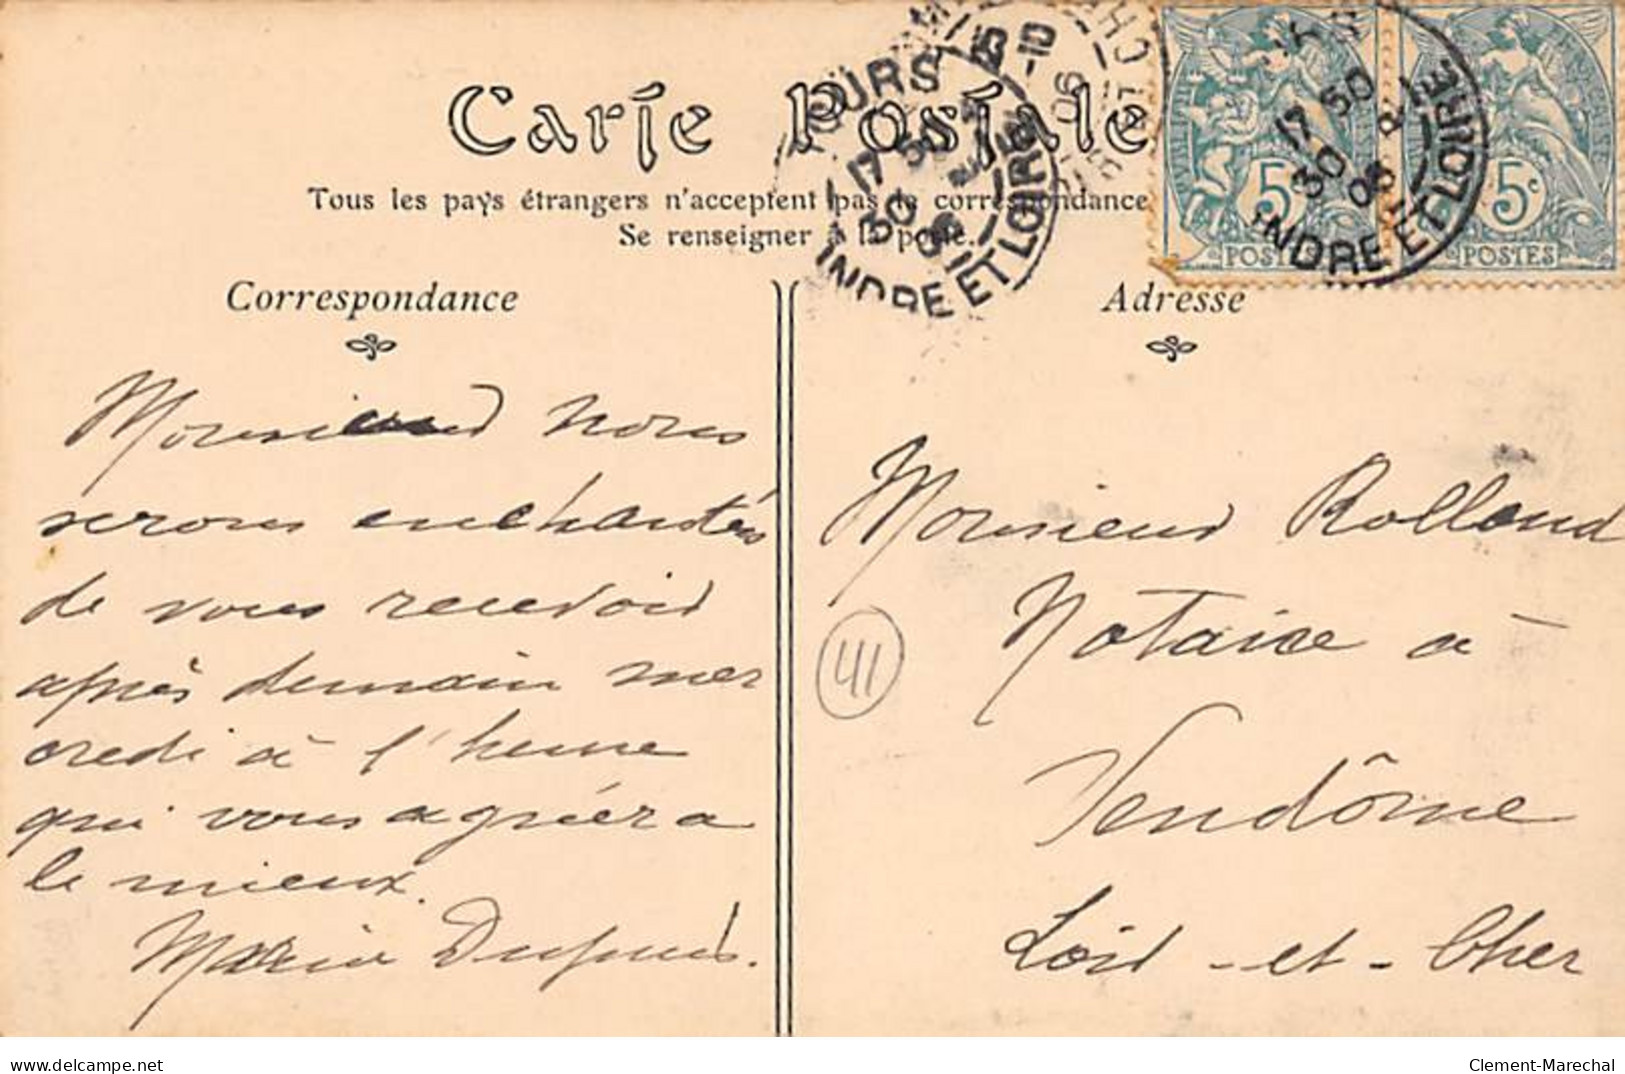 Carte Postale
Tous les pays étrangers n'acceptent pas la correspondance
Se renseigner à la poste.
TOURS
17 50
30
06
INDRE ET LOIRE
17 50
30
06
INDRE ET LOIRE
5c
POSTES
5c
POSTES
Correspondance
Adresse
Monsieur nous
serons enchantés
de vous recevoir
après demain mer
credi à l'heure
qui vous agréera
le mieux.
Maria Dupuis.
41
Monsieur Rolland
Notaire à
Vendôme
Loir-et-Cher
www.delcampe.net
Clement-Marechal